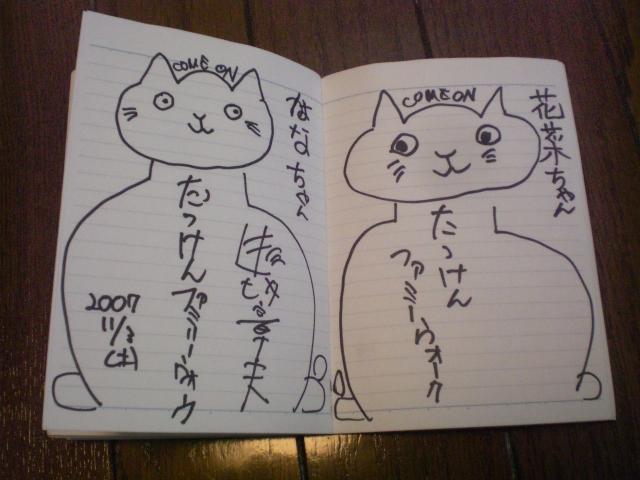 COME ON
はなちゃん
たっけん
ファミリーウォーク
2007
(土)
COME ON
花菜ちゃん
たっけん
ファミリーウォーク